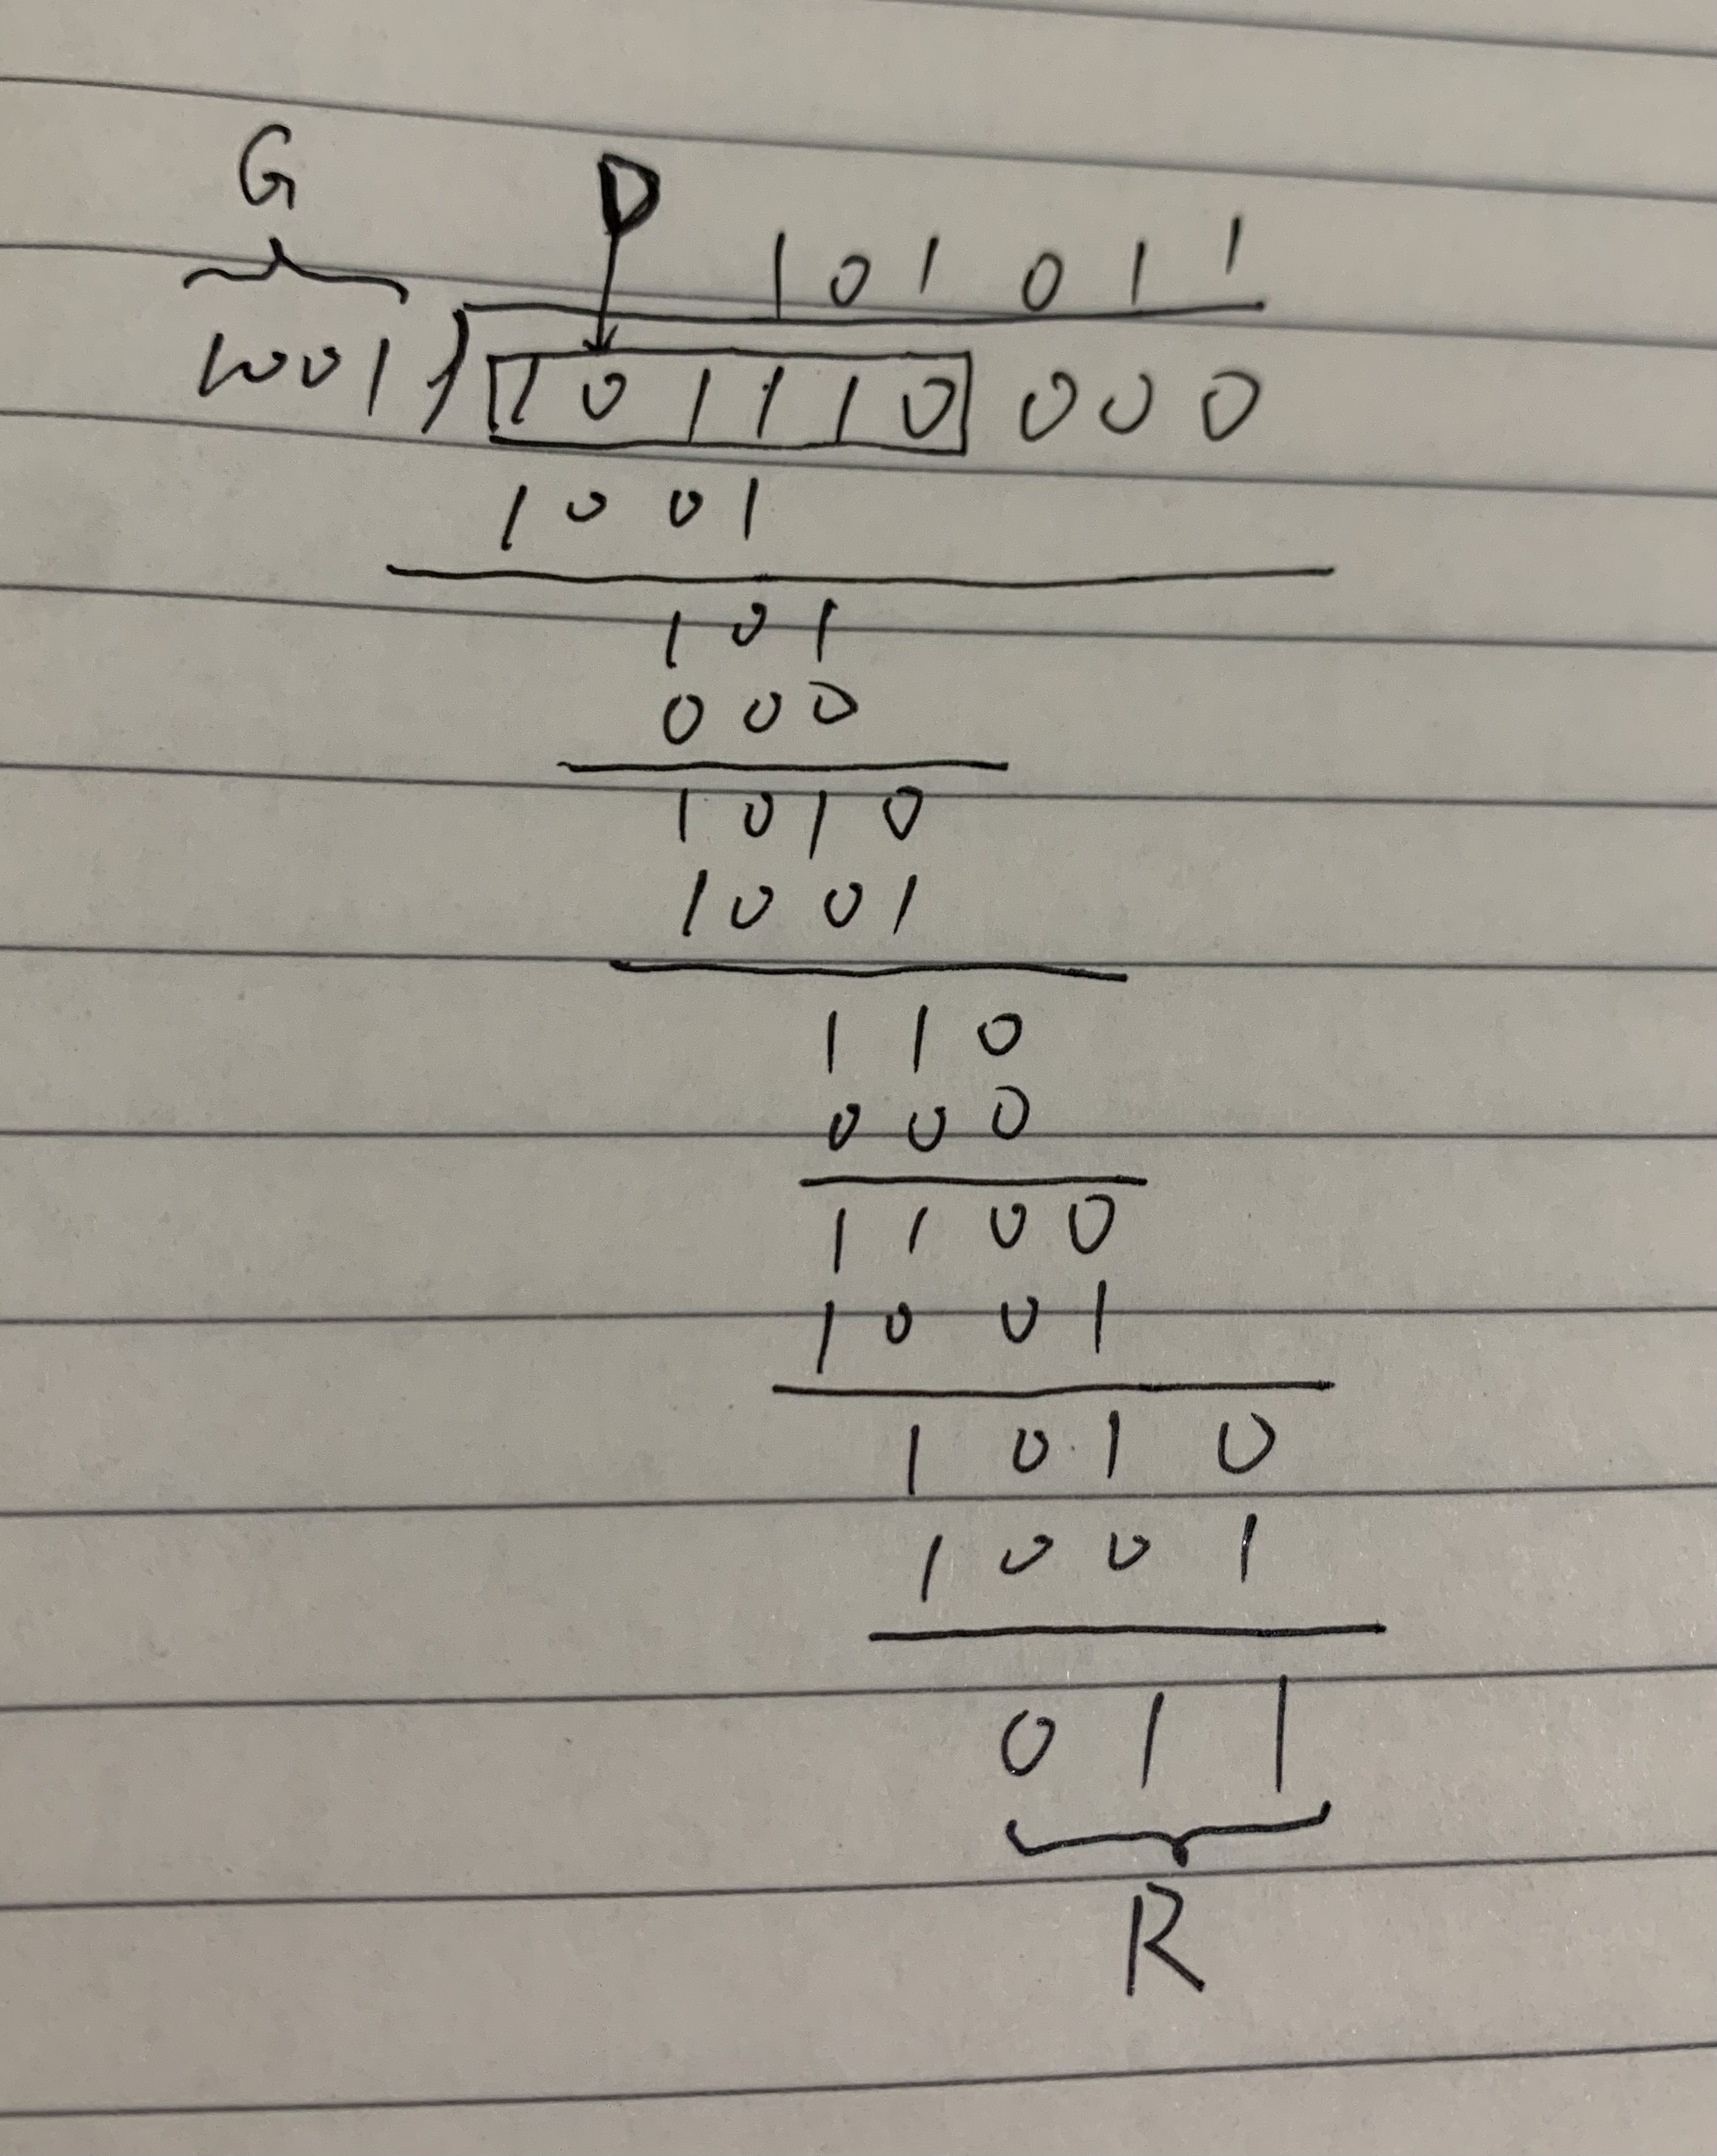 G D
1 0 1 0 1 1
1001 1 0 1 1 1 0 0 0 0
1 0 0 1
1 0 1
0 0 0
1 0 1 0
1 0 0 1
1 1 0
0 0 0
1 1 0 0
1 0 0 1
1 0 1 0
1 0 0 1
0 1 1
R